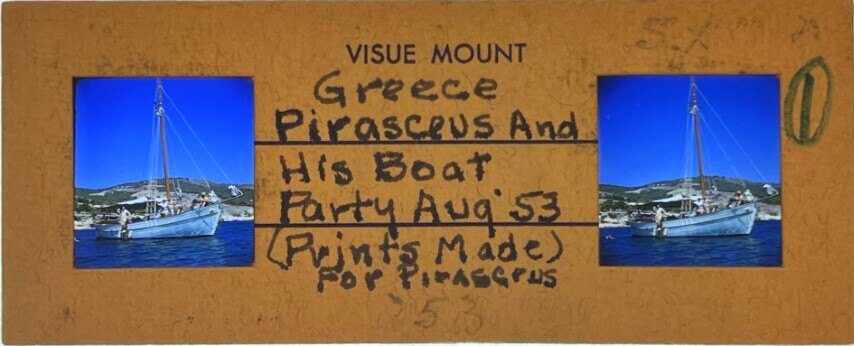 VISUE MOUNT
Greece
Pirasceus And
His Boat
Party Aug '53
(Prints Made)
For Pirasceus
1
253